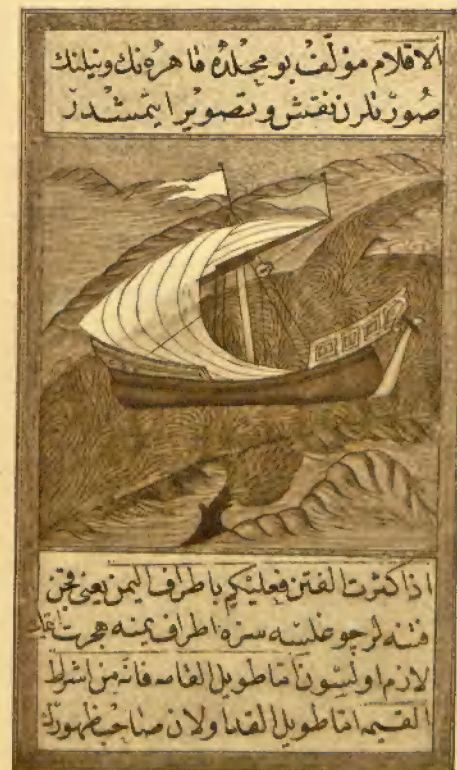 الاقلام مؤلّفْ بو مجلّده قاهره‌نك ونيلنك
صُورتلرن نقش و تصوير ايتمشدر
اذا كثرت الفتن فعليكم باطراف اليمن يعنى قچن
فتنه لر چوغلسه سزه اطراف يمنه هجرت
لازم اولسون امّا طويل القامه فانّه من اشراط
القيمه امّا طويل القد اولان صاحب ظهورك